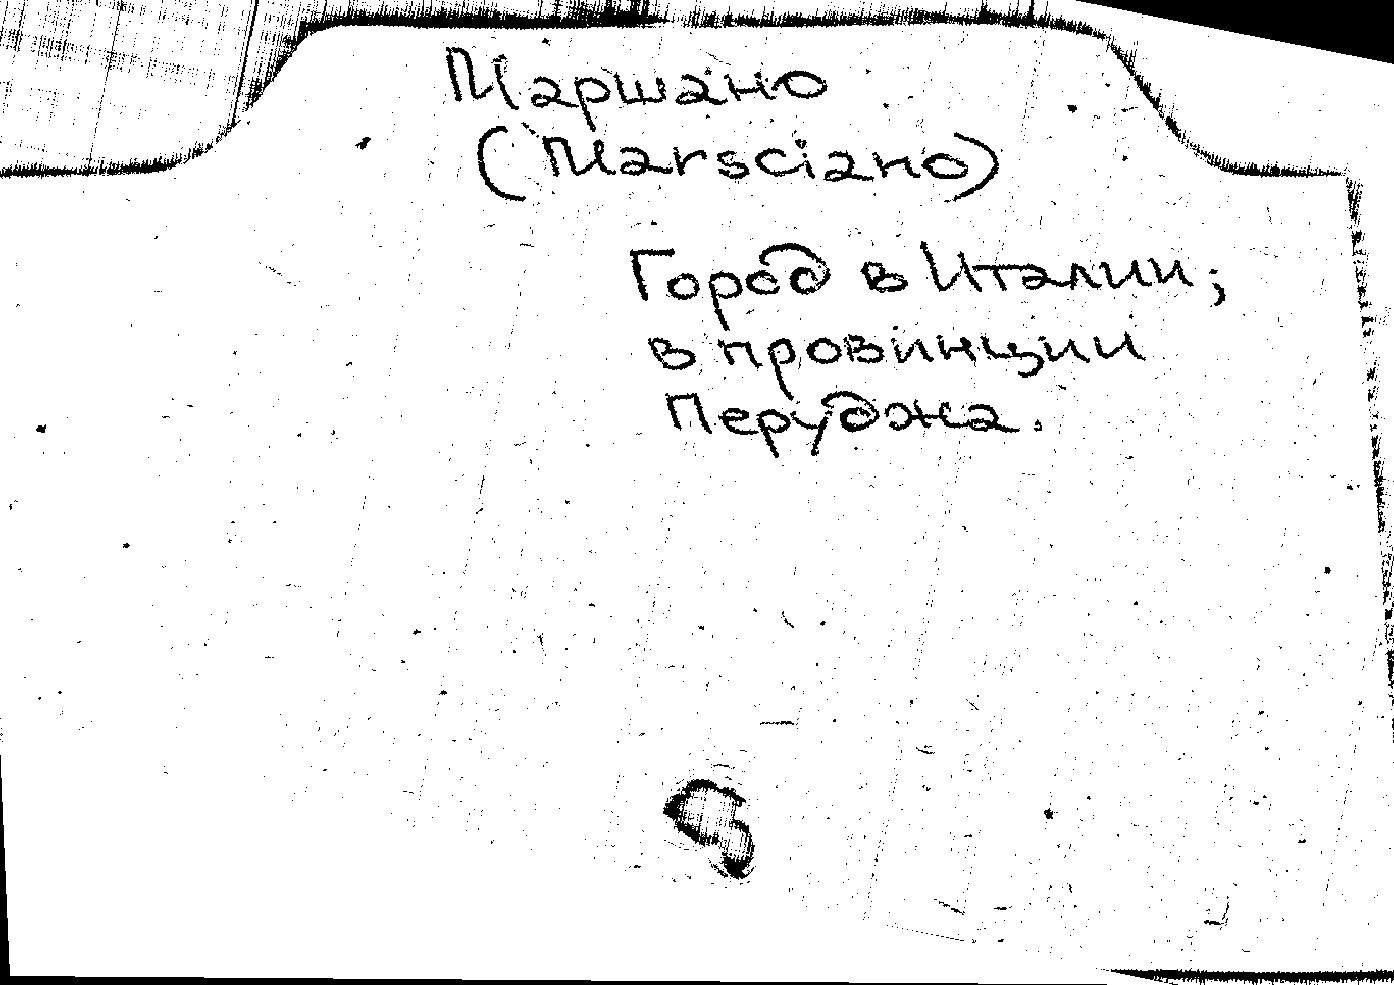 Маршано
(Marsciano)
Город в Италии;
в провинции
Перуджа.